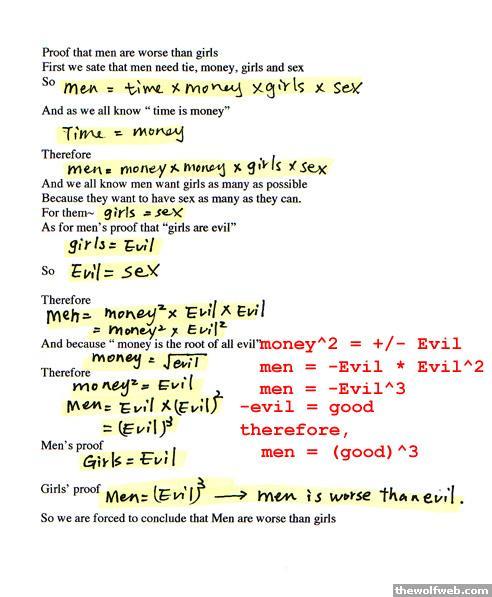 Proof that men are worse than girls
First we sate that men need tie, money, girls and sex
So men = time x money x girls x sex
And as we all know “ time is money”
Time = money
Therefore
men = money x money x girls x sex
And we all know men want girls as many as possible
Because they want to have sex as many as they can.
For them~ girls = sex
As for men’s proof that “girls are evil”
girls = Evil
So Evil = sex
Therefore
men = money² x Evil x Evil
= money² x Evil²
And because “ money is the root of all evil”
money = √evil
Therefore
money² = Evil
Men = Evil x (Evil)²
= (Evil)³
money^2 = +/- Evil
men = -Evil * Evil^2
men = -Evil^3
-evil = good
therefore,
men = (good)^3
Men’s proof
Girls = Evil
Girls’ proof Men = (Evil)³ → men is worse than evil.
So we are forced to conclude that Men are worse than girls
thewolfweb.com